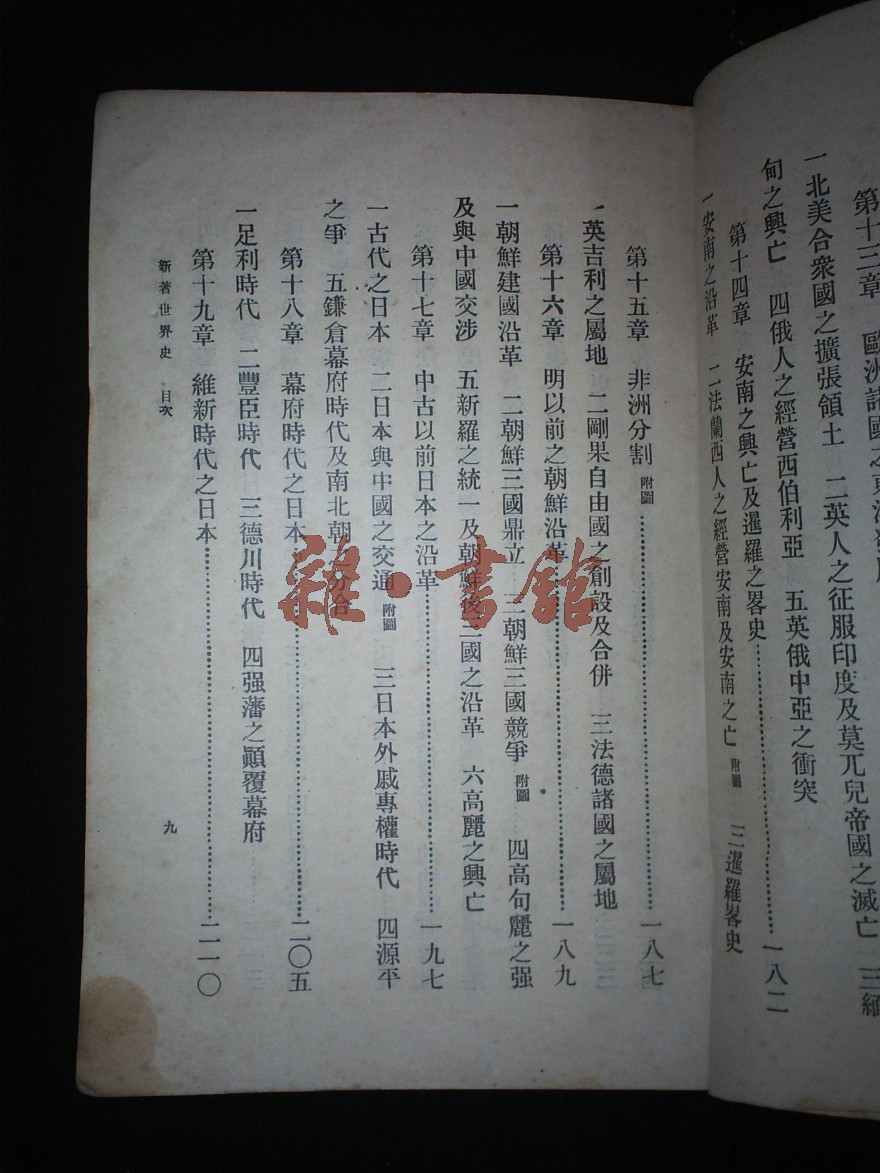 第十三章　歐洲諸國之東
一北美合衆國之擴張領土　二英人之征服印度及莫兀兒帝國之滅亡　三緬
甸之興亡　四俄人之經營西伯利亞　五英俄中亞之衝突
第十四章　安南之興亡及暹羅之畧史…………一八二
一安南之沿革　二法蘭西人之經營安南及安南之亡 附圖　三暹羅畧史
第十五章　非洲分割 附圖…………一八七
一英吉利之屬地　二剛果自由國之創設及合併　三法德諸國之屬地
第十六章　明以前之朝鮮沿革…………一八九
一朝鮮建國沿革　二朝鮮三國鼎立　三朝鮮三國競爭 附圖　四高句麗之强
及與中國交涉　五新羅之統一及朝鮮後三國之沿革　六高麗之興亡
第十七章　中古以前日本之沿革…………一九七
一古代之日本　二日本與中國之交通 附圖　三日本外戚專權時代　四源平
之爭　五鎌倉幕府時代及南北朝之分合
第十八章　幕府時代之日本…………二〇五
一足利時代　二豐臣時代　三德川時代　四强藩之顚覆幕府
第十九章　維新時代之日本…………二一〇
新著世界史　目次
九
雜·書館